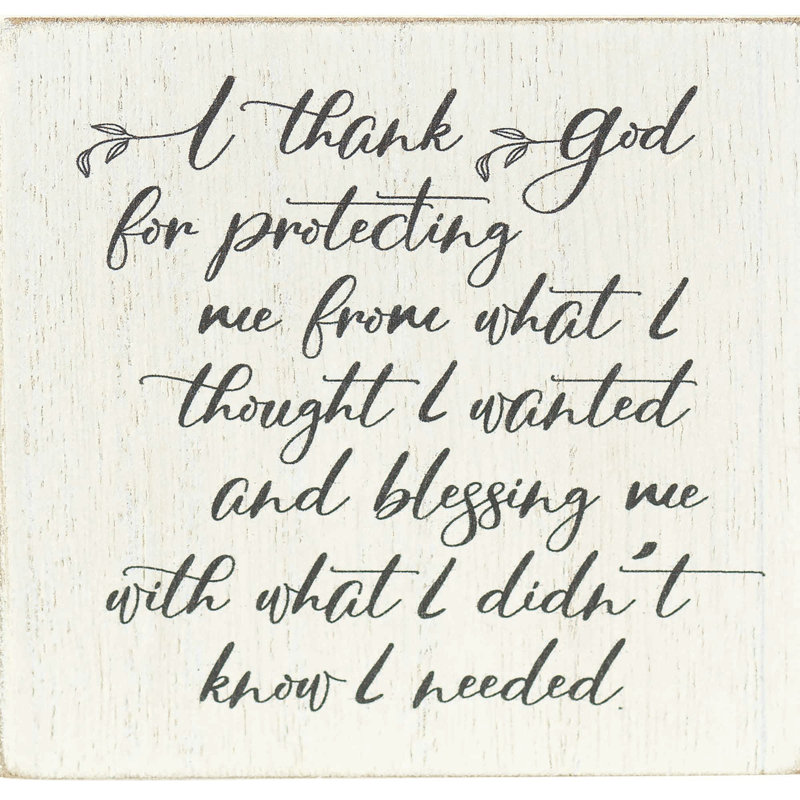 I thank God
for protecting
me from what I
thought I wanted
and blessing me
with what I didn't
know I needed.